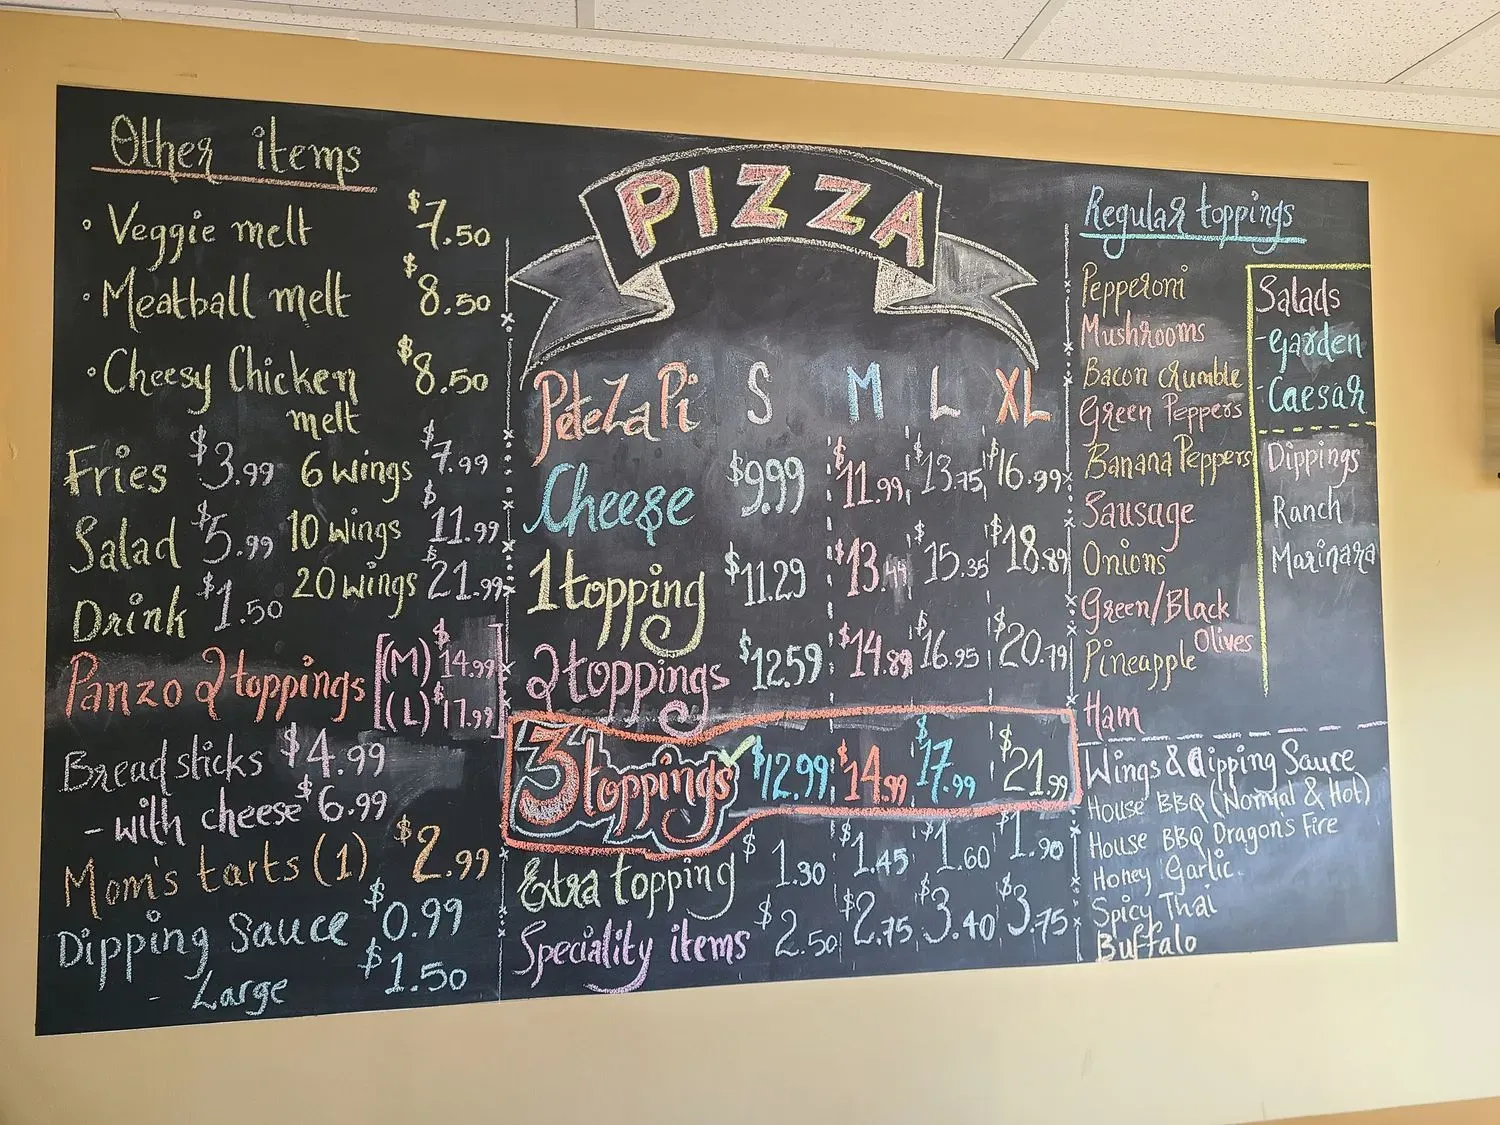 Other items
• Veggie melt $7.50
• Meatball melt $8.50
• Cheesy Chicken $8.50
melt
Fries $3.99 6 wings $7.99
Salad $5.99 10 wings $11.99
Drink $1.50 20 wings $21.99
Panzo 2 toppings [(M) $14.99]
[(L) $17.99]
Bread sticks $4.99
- with cheese $6.99
Mom's tarts (1) $2.99
Dipping Sauce $0.99
- Large $1.50
PIZZA
PeteZaPi S M L XL
Cheese $9.99 $11.99 $13.75 $16.99
1 topping $11.29 $13.44 $15.35 $18.89
2 toppings $12.59 $14.89 $16.95 $20.79
3 toppings $12.99 $14.99 $17.99 $21.99
Extra topping $1.30 $1.45 $1.60 $1.90
Speciality items $2.50 $2.75 $3.40 $3.75
Regular toppings
Pepperoni
Mushrooms
Bacon crumble
Green Peppers
Banana Peppers
Sausage
Onions
Green/Black
Olives
Pineapple
Ham
Salads
- Garden
- Caesar
Dippings
Ranch
Marinara
Wings & dipping Sauce
House BBQ (Normal & Hot)
House BBQ Dragon's Fire
Honey Garlic
Spicy Thai
Buffalo